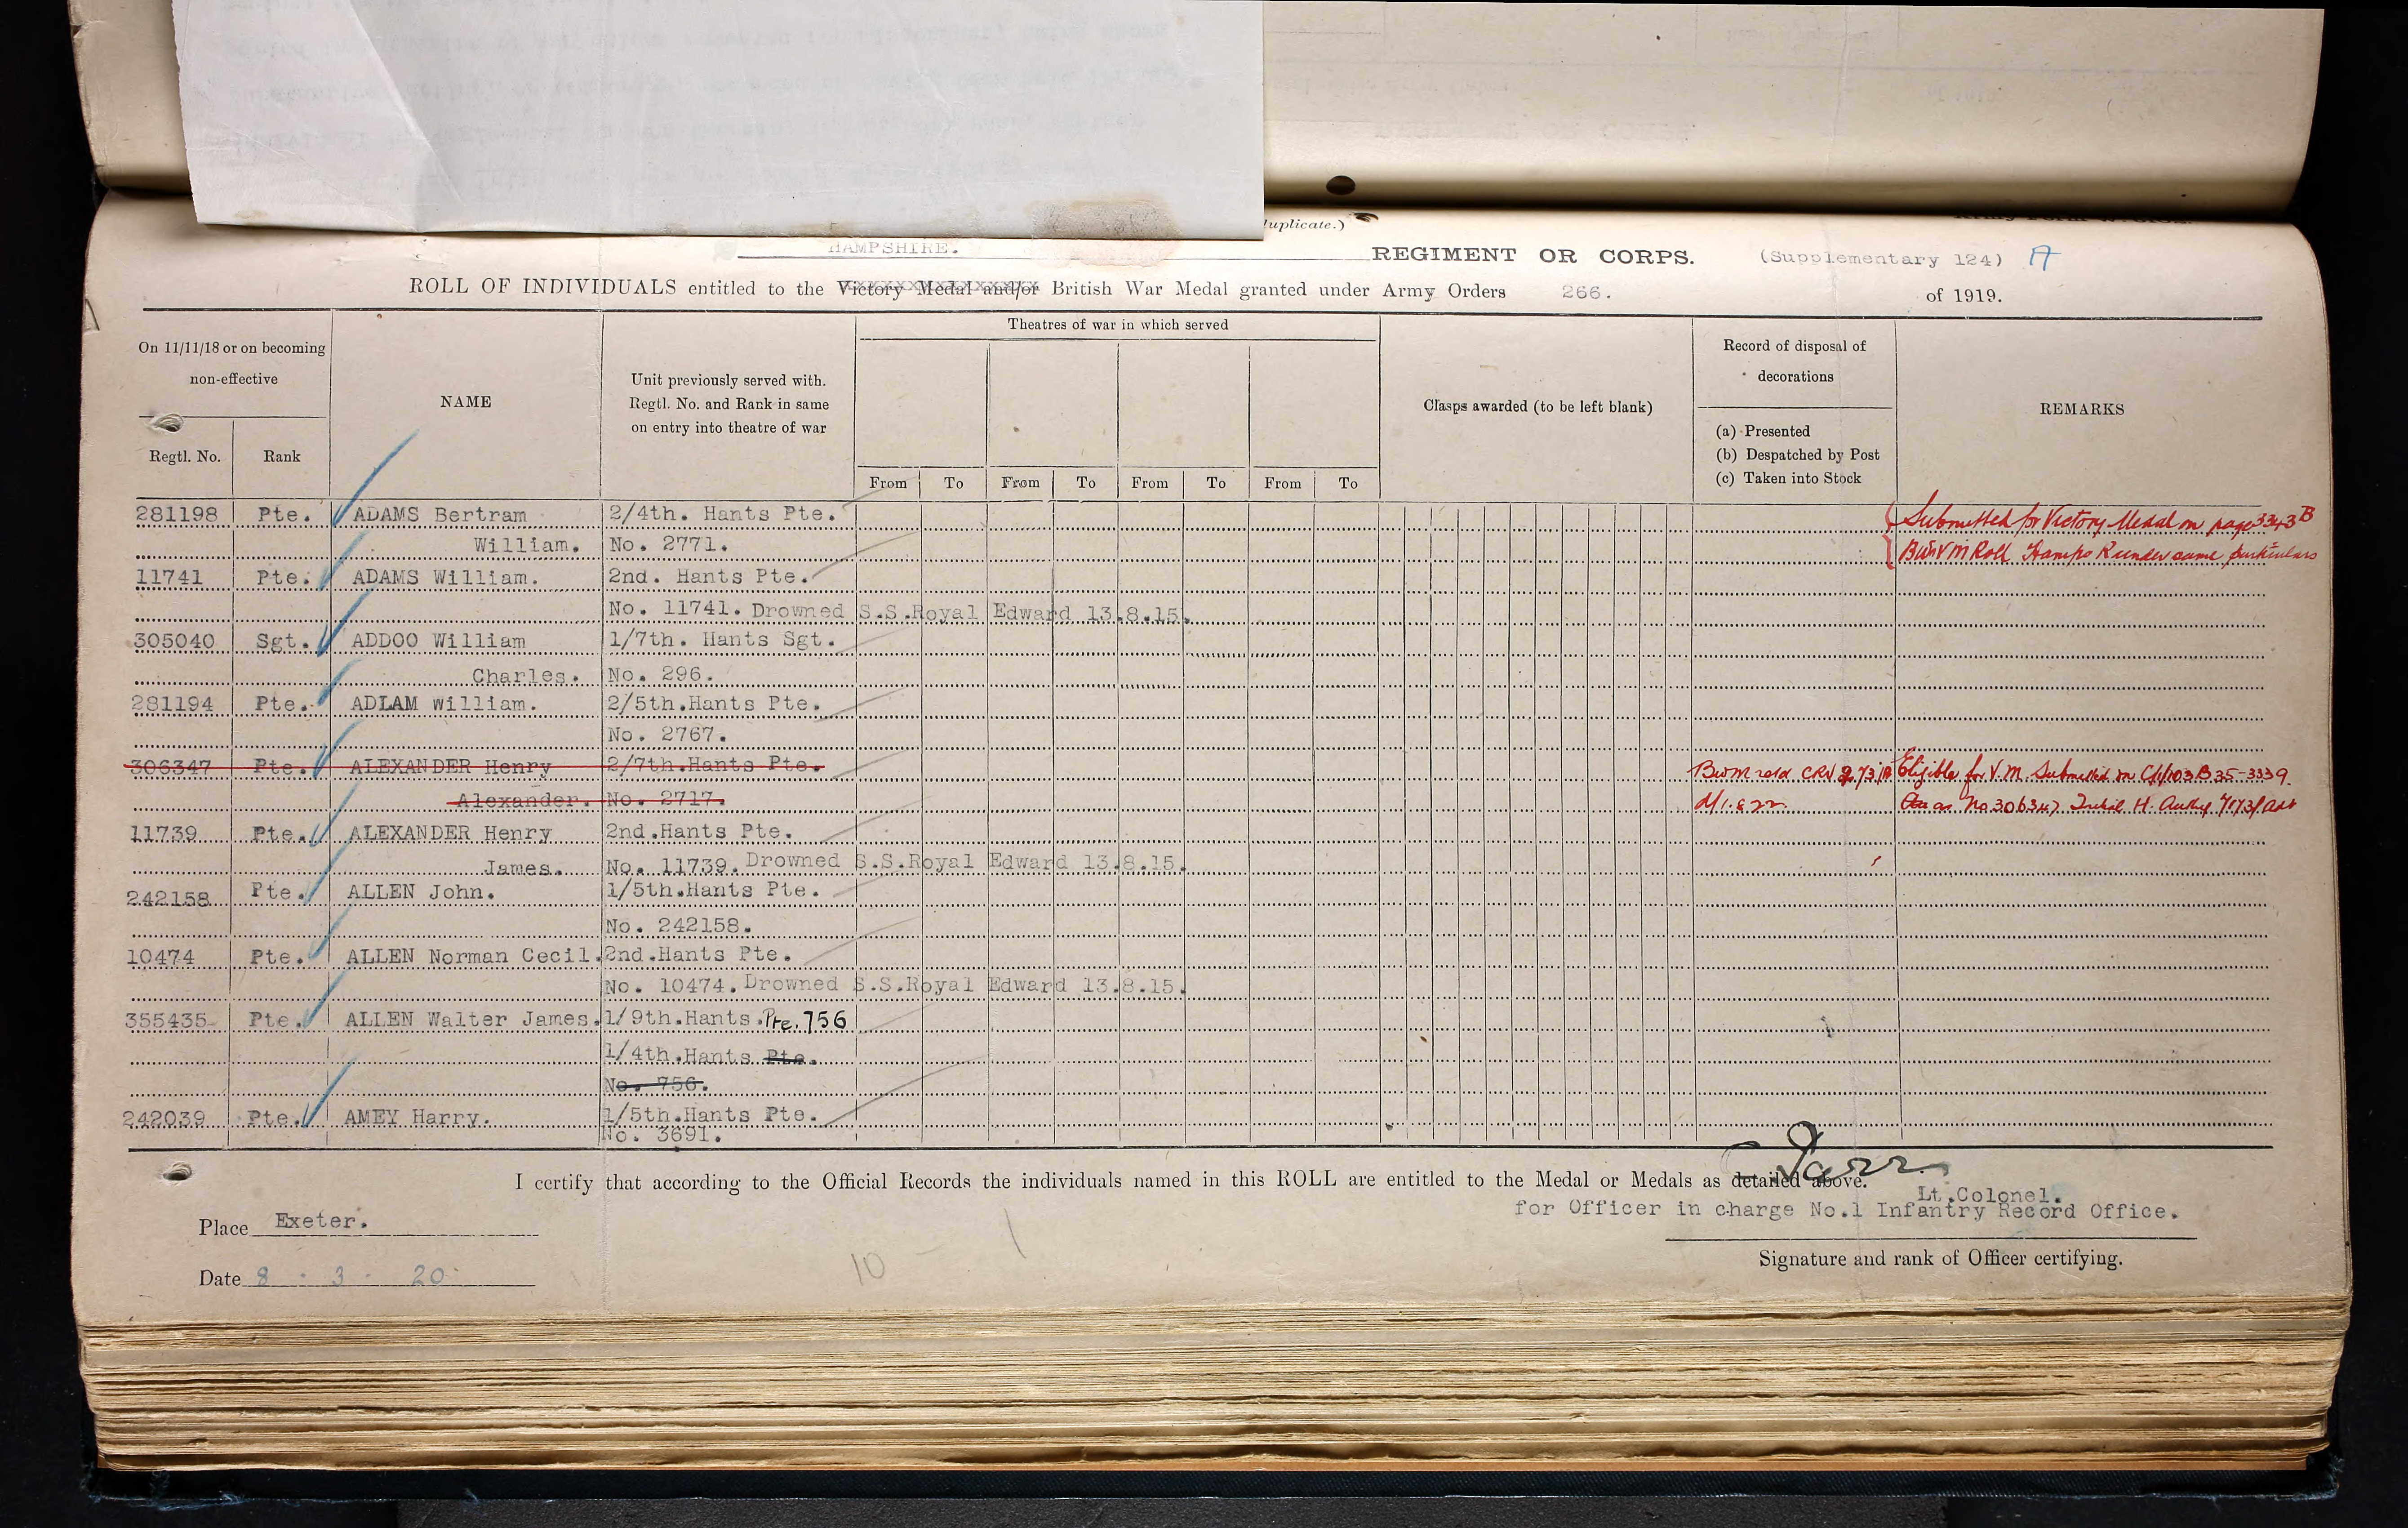 duplicate.)
HAMPSHIRE. REGIMENT OR CORPS. (Supplementary 124)
ROLL OF INDIVIDUALS entitled to the Victory Medal and/or British War Medal granted under Army Orders 266. of 1919.
On 11/11/18 or on becoming non-effective
Regtl. No. Rank
NAME
Unit previously served with.
Regtl. No. and Rank in same
on entry into theatre of war
Theatres of war in which served
From To From To From To From To
Clasps awarded (to be left blank)
Record of disposal of
decorations
(a) Presented
(b) Despatched by Post
(c) Taken into Stock
REMARKS
281198 Pte. ADAMS Bertram 2/4th. Hants Pte. Submitted for Victory Medal on page 3343B
William. No. 2771. BW&VM Roll Hamps R under same particulars
11741 Pte. ADAMS William. 2nd. Hants Pte.
No. 11741. Drowned S.S.Royal Edward 13.8.15.
305040 Sgt. ADDOO William 1/7th. Hants Sgt.
Charles. No. 296.
281194 Pte. ADLAM William. 2/5th.Hants Pte.
No. 2767.
306347 Pte. ALEXANDER Henry 2/7th.Hants Pte. Eligible for V.M. Submitted on
Alexander. No. 2717. No. 306347
11739 Pte. ALEXANDER Henry 2nd.Hants Pte.
James. No. 11739. Drowned S.S.Royal Edward 13.8.15.
242158 Pte. ALLEN John. 1/5th.Hants Pte.
No. 242158.
10474 Pte. ALLEN Norman Cecil. 2nd.Hants Pte.
No. 10474. Drowned S.S.Royal Edward 13.8.15.
355435 Pte. ALLEN Walter James. 1/9th.Hants. Pte. 756
1/4th.Hants Pte.
No. 756.
242039 Pte. AMEY Harry. 1/5th.Hants Pte.
No. 3691.
I certify that according to the Official Records the individuals named in this ROLL are entitled to the Medal or Medals as detailed above.
Lt.Colonel.
for Officer in charge No.1 Infantry Record Office.
Place Exeter.
Signature and rank of Officer certifying.
Date 8 . 3 . 20.
10 - 1